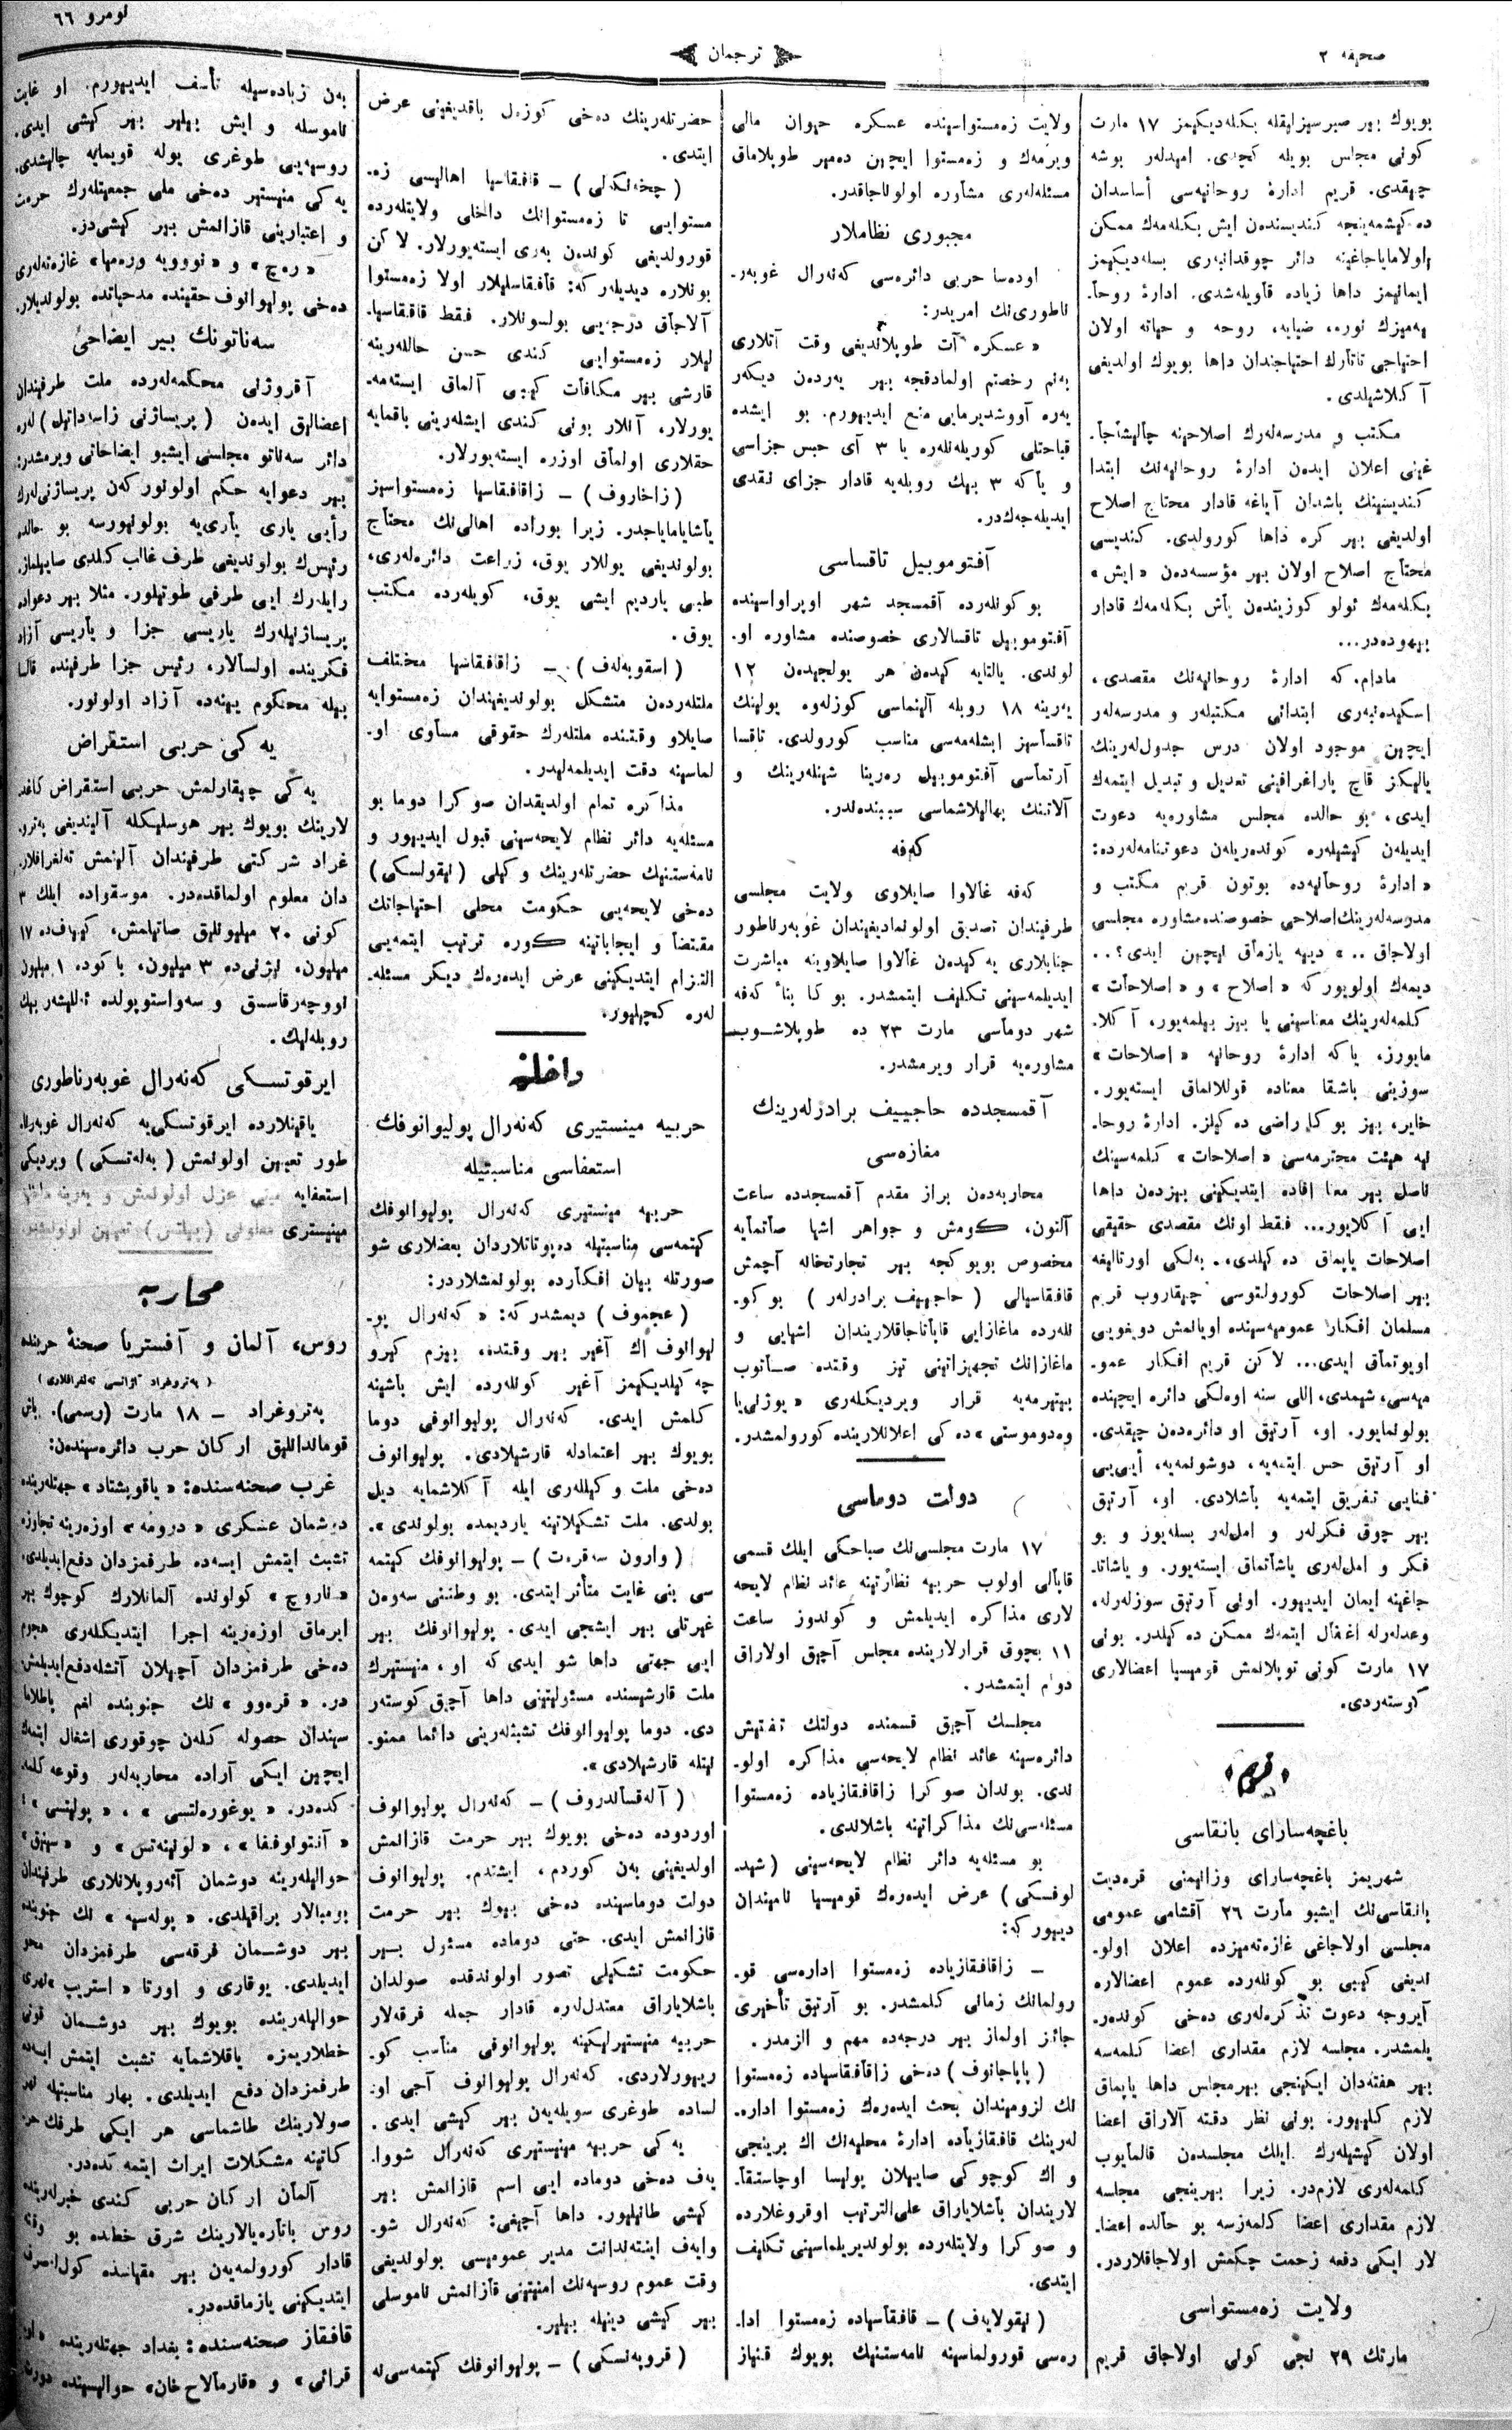 صحیفه ٢
ترجمان
نومرو ٦٦
بویوك بیر صبرسزلیقله بكله‌دیكیمز ١٧ مارت
كونی مجلس بویله كچدی. امیدلەر بوشه
چیقدی. قریم ادارۀ روحانیه‌سی أساسدان
ده‌كیشمه‌ینجه كندیسندن ایش بكله‌مەك ممكن
اولامایاجاغینه دائر چوقدانبەری بسله‌دیكیمز
ایمانیمز داها زیاده قاویله‌شدی. ادارۀ روحا-
نیه‌میزك نوره، ضیایه، روحه و حیاته اولان
احتیاجی تاتارك احتیاجندان داها بویوك اولدیغی
آكلاشیلدی.
مكتب و مدرسه‌لەرك اصلاحینه چالیشاجا-
غینی اعلان ایدەن ادارۀ روحانیه‌نك ابتدا
كندیسینك باشدان آیاغه قادار محتاج اصلاح
اولدیغی بیر كره داها كورولدی. كندیسی
محتاج اصلاح اولان بیر مؤسسه‌دەن «ایش»
بكله‌مەك ئولو كوزیندەن یاش بكله‌مەك قادار
بیهوده‌در...
مادام كه ادارۀ روحانیه‌نك مقصدی،
اسكیدەنبەری ابتدائی مكتبلەر و مدرسه‌لەر
ایچین موجود اولان درس جدول‌لەرینك
یالیكز قاچ پاراغرافینی تعدیل و تبدیل ایتمەك
ایدی، بو حالده مجلس مشاورەیه دعوت
ایدیلەن كیشیلەره كوندەریلەن دعوتنامه‌لەرده:
«ادارۀ روحانیه‌ده بوتون قریم مكتب و
مدرسه‌لەرینك اصلاحی خصوصنده مشاوره مجلسی
اولاجاق ..» دییه یازماق ایچین ایدی؟..
دیمەك اولویور كه «اصلاح» و «اصلاحات»
كلمه‌لەرینك معناسینی یا بیز بیلمه‌یور، آكلا-
مایورز، یاكه ادارۀ روحانیه «اصلاحات»
سوزینی باشقا معناده قوللانماق ایسته‌یور.
خایر، بیز بوكا راضی ده‌كیلز. ادارۀ روحا-
نیه هیئت محترمه‌سی «اصلاحات» كلمه‌سینك
ناصل بیر معنا افاده ایتدیكینی بیزدەن داها
ایی آكلایور... فقط اونك مقصدی حقیقی
اصلاحات یاپماق ده‌كیلدی، بەلكی اورتالیغه
بیر اصلاحات كورولتوسی چیقاروب قریم
مسلمان افكار عمومیه‌سینده اویانمش دویغویی
اویوتماق ایدی... لاكن قریم افكار عمو-
میه‌سی، شیمدی، اللی سنه اوەلكی دائره ایچینده
بولونمایور. او، آرتیق او دائره‌دەن چیقدی.
او آرتیق حس ایتمه‌یه، دوشونمه‌یه، أیی‌یی
فنایی تفریق ایتمه‌یه باشلادی. او، آرتیق
بیر چوق فكرلەر و امل‌لەر بسله‌یوز و بو
فكر و امل‌لەری یاشاتماق ایسته‌یور. و یاشاتا-
جاغینه ایمان ایدییور. اونی آرتیق سوزلەرله،
وعدلەرله اغفال ایتمەك ممكن ده‌كیلدر. بونی
١٧ مارت كونی توپلانمش قومیسیا اعضالاری
كوستەردی.
قریم
باغچه‌سارای بانقاسی
شهریمز باغچه‌سارای وزائیمنی قره‌دیت
بانقاسی‌نك ایشبو مارت ٢٦ آقشامی عمومی
مجلسی اولاجاغی غازه‌ته‌میزده اعلان اولو-
ندیغی كیبی بو كونلەرده عموم اعضالاره
آیروجه دعوت تذكره‌لەری دەخی كوندەر-
یلمشدر. مجلسه لازم مقداری اعضا كلمه‌سه
بیر هفته‌دان ایكینجی بیرمجلس داها یاپماق
لازم كلییور. بونی نظر دقته آلاراق اعضا
اولان كیشیلەرك ایلك مجلسدەن قالمایوب
كلمه‌لەری لازم‌در. زیرا بیرینجی مجلسه
لازم مقداری اعضا كلمه‌زسه بو حالده اعضا-
لار ایكی دفعه زحمت چكمش اولاجاقلاردر.
ولایت زه‌مستواسی
مارتك ٢٩ نجی كونی اولاجاق قریم
ولایت زه‌مستواسینده عسكره حیوان مالی
ویرمەك و زه‌مستوا ایچین دەمیر طوپلاماق
مسئله‌لەری مشاوره اولوناجاقدر.
مجبوری نظاملار
اودەسا حربی دائره‌سی كەنەرال غوبەر-
ناطوری‌نك امریدر:
«عسكره آت طوپلاندیغی وقت آتلاری
بەنم رخصتم اولمادقجه بیر یەردەن دیكەر
یەره آووشدیرمایی منع ایدییورم. بو ایشده
قباحتلی كوریلەنلەره یا ٣ آی حبس جزاسی
و یاكه ٣ بیك روبله‌یه قادار جزای نقدی
ایدیله‌جەك‌در.
آفتوموبیل تاقساسی
بو كونلەرده آقمسجد شهر اوپراواسینده
آفتوموبیل تاقسالاری خصوصنده مشاوره او-
لوندی. یالتایه كیدەن هر یولجیدەن ١٢
یەرینه ١٨ روبله آلینماسی كوزلەوه یولینك
تاقساسیز ایشله‌مه‌سی مناسب كورولدی. تاقسا
آرتماسی آفتوموبیل رەزینا شینلەرینك و
آلاتنك بهالیلاشماسی سببنده‌ندر.
كەفه
كەفه غالاوا صایلاوی ولایت مجلسی
طرفیندان تصدیق اولونمادیغیندان غوبەرناطور
جنابلاری یەكیدەن غالاوا صایلاوینه مباشرت
ایدیلمه‌سینی تكلیف ایتمشدر. بوكا بنأ كەفه
شهر دوماسی مارت ٢٣ ده طوپلاشوب
مشاورەیه قرار ویرمشدر.
آقمسجدده حاجییف برادرلەرینك
مغازه‌سی
محاربه‌دەن براز مقدم آقمسجدده ساعت
آلتون، كومش و جواهر اشیا صاتمایه
مخصوص بویوكجه بیر تجارتخانه آچمش
قافقاسیالی (حاجییف برادرلەر) بو كو-
نلەرده ماغازایی قاپاتاجاقلاریندان اشیایی و
ماغازانك تجهیزاتینی تیز وقتده صاتوب
بیتیرمه‌یه قرار ویردیكلەری «یوژنی‌یا
وەدوموستی»ده‌كی اعلانلارینده كورولمشدر.
دولت دوماسی
١٧ مارت مجلسی‌نك صباحكی ایلك قسمی
قاپالی اولوب حربیه نظارتینه عائد نظام لایحه
لاری مذاكره ایدیلمش و كوندوز ساعت
١١ بچوق قرارلارینده مجلس آچیق اولاراق
دوام ایتمشدر.
مجلسك آچیق قسمنده دولتك تفتیش
دائره‌سینه عائد نظام لایحه‌سی مذاكره اولو-
ندی. بوندان صوكرا زاقافقازیاده زه‌مستوا
مسئله‌سی‌نك مذاكراتینه باشلاندی.
بو مسئله‌یه دائر نظام لایحه‌سینی (شید-
لوفسكی) عرض ایدەرەك قومیسیا نامیندان
دییور كه:
— زاقافقازیاده زه‌مستوا اداره‌سی قو-
رولمانك زمانی كلمشدر. بو آرتیق تأخیری
جائز اولماز بیر درجه‌ده مهم و الزمدر.
(پاپاجانوف) دەخی زاقافقاسیاده زه‌مستوا
نك لزومیندان بحث ایدەرەك زه‌مستوا اداره-
لەرینك قافقازیاده ادارۀ محلیه‌نك اك برینجی
و اك كوچوكی صاییلان پولیسا اوچاستقا-
لاریندان باشلایاراق علی‌الترتیب اوقروغلارده
و صوكرا ولایتلەرده بولوندیریلماسینی تكلیف
ایتدی.
(نیقولایەف) — قافقاسیاده زه‌مستوا ادا-
ره‌سی قورولماسینه نامەستنیك بویوك قنیاز
حضرتلەرینك دەخی كوزەل باقدیغینی عرض
ایتدی.
(چخەنكەلی) — قافقاسیا اهالیسی زه-
مستوایی تا زه‌مستوانك داخلی ولایتلەرده
قورولدیغی كوندەن بەری ایسته‌یورلار. لاكن
بونلاره دیدیلەر كه: قافقاسلیلار اولا زه‌مستوا
آلاجاق درجه‌یی بولسونلار. فقط قافقاسیا-
لیلار زه‌مستوایی كندی حسن حاللەرینه
قارشی بیر مكافات كیبی آلماق ایسته‌مه-
یورلار، آنلار بونی كندی ایشلەرینی باقمایه
حقلاری اولماق اوزره ایسته‌یورلار.
(زاخاروف) — زاقافقاسیا زه‌مستواسیز
یاشایامایاجدر. زیرا بوراده اهالی‌نك محتاج
بولوندیغی یوللار یوق، زراعت دائره‌لەری،
طبی یاردیم ایشی یوق، كویلەرده مكتب
یوق.
(اسقوبەلەف) — زاقافقاسیا مختلف
ملتلەردەن متشكل بولوندیغیندان زه‌مستوایه
صایلاو وقتنده ملتلەرك حقوقی مساوی او-
لماسینه دقت ایدیلمه‌لیدر.
مذاكره تمام اولدیقدان صوكرا دوما بو
مسئله‌یه دائر نظام لایحه‌سینی قبول ایدییور و
نامەستنیك حضرتلەرینك وكیلی (نیقولسكی)
دەخی لایحه‌یی حكومت محلی احتیاجاتك
مقتضأ و ایجاباتینه كوره ترتیب ایتمه‌یی
التزام ایتدیكینی عرض ایدەرەك دیكر مسئله-
لەره كچیلیور.
داخلیه
حربیه مینیستیری كەنەرال پولیوانوفك
استعفاسی مناسبتیله
حربیه مینیستیری كەنەرال پولیوانوفك
كیتمه‌سی مناسبتیله دەپوتاتلاردان بعضلاری شو
صورتله بیان افكارده بولونمشلاردر:
(عجموف) دیمشدر كه: «كەنەرال پو-
لیوانوف اك آغیر بیر وقتده، بیزم كیرو
چەكیلدیكیمز آغیر كونلەرده ایش باشینه
كلمش ایدی. كەنەرال پولیوانوفی دوما
بویوك بیر اعتمادله قارشیلادی. پولیوانوف
دەخی ملت وكیللەری ایله آكلاشمایه دیل
بولدی. ملت تشكیلاتینه یاردیمده بولوندی».
(وارون سەقرەت) — پولیوانوفك كیتمه
سی بنی غایت متأثر ایتدی. بو وطننی سەوەن
غیرتلی بیر ایشجی ایدی. پولیوانوفك بیر
ایی جهتی داها شو ایدی كه او، مینیستیرك
ملت قارشیسنده مسئولیتینی داها آچیق كوستەر
دی. دوما پولیوانوفك تشبثلەرینی دائما ممنو-
نیتله قارشیلادی».
(آلەقساندروف) — كەنەرال پولیوانوف
اوردوده دەخی بویوك بیر حرمت قازانمش
اولدیغینی بەن كوردم، ایشتدم. پولیوانوف
دولت دوماسینده دەخی بیوك بیر حرمت
قازانمش ایدی. حتی دوماده مسئول بیر
حكومت تشكیلی تصور اولوندقده صولدان
باشلایاراق معتدل‌لەره قادار جمله فرقه‌لار
حربیه مینیستیرلیكینه پولیوانوفی مناسب كو-
رییورلاردی. كەنەرال پولیوانوف آجی او-
لساده طوغری سویله‌یەن بیر كیشی ایدی.
یەكی حربیه مینیستیری كەنەرال شووا-
یەف دەخی دوماده ایی اسم قازانمش بیر
كیشی طانیلیور. داها آچیغی: كەنەرال شو-
وایەف اینتەندانت مدیر عمومیسی بولوندیغی
وقت عموم روسیه‌نك امنیتینی قازانمش ناموسلی
بیر كیشی دینیله بیلیر.
(قروپەنسكی) — پولیوانوفك كیتمه‌سی‌نه
بەن زیاده‌سیله تأسف ایدییورم. او غایت
ناموسله و ایش بیلیر بیر كیشی ایدی.
روسیه‌یی طوغری یوله قویمایه چالیشدی.
یەكی مینیستیر دەخی ملی جمعیتلەرك حرمت
و اعتبارینی قازانمش بیر كیشی‌در.
«رەچ» و «نووویه ورەمیا» غازه‌ته‌لەری
دەخی پولیوانوف حقینده مدحیاتده بولوندیلار.
سەناتونك بیر ایضاحی
آقروژنی محكمه‌لەرده ملت طرفیندان
اعضالیق ایدەن (پریساژنی زاسەداتیل)لەره
دائر سەناتو مجلسی ایشبو ایضاحاتی ویرمشدر:
بیر دعوایه حكم اولونور كەن پریساژنی‌لەرك
رأیی یاری یاری‌یه بولونیورسه بو حالده
رئیس‌ك بولوندیغی طرف غالب كلدی صاییلماز.
رایلەرك ایی طرفی طوتیلور. مثلا بیر دعواده
پریساژنیلەرك یاریسی جزا و یاریسی آزاد
فكرینده اولسالار، رئیس جزا طرفینده قالسا
بیله محكوم یینه‌ده آزاد اولونور.
یەكی حربی استقراض
یەكی چیقارلمش حربی استقراض كاغد
لارینك بویوك بیر هوسلیكله آلیندیغی پەترو-
غراد شركتی طرفیندان آلینمش تەلغرافلار-
دان معلوم اولماقده‌در. موسقواده ایلك ٣
كونی ٢٠ میلیونلیق صاتیلمش، كییاف‌ده ١٧
میلیون، نیژنی‌ده ٣ میلیون، باكوده ١ میلیون
اووچەرقاسسق و سەواستوپولده ئللیشەر بیك
روبله‌لیك.
ایرقوتسكی كەنەرال غوبەرناطوری
یاقینلارده ایرقوتسكی‌یه كەنەرال غوبەرنا-
طور تعیین اولونمش (بەلەتسكی) ویردیكی
استعفایه مبنی عزل اولونمش و یەرینه داخلیه
مینیستری معاونی (پیلتس) تعیین اولونمشدر.
محاربه
روس، آلمان و آفستریا صحنۀ حربنده
(پەتروغراد آژانسی تەلغرافلاری)
پەتروغراد — ١٨ مارت (رسمی). باش
قومانداانلیق اركان حرب دائره‌سیندەن:
غرب صحنه‌سنده: «یاقوبشتاد» جهتلەرینده
دوشمان عسكری «دروغه» اوزەرینه تجاوزه
تشبث ایتمش ایسه‌ده طرفمزدان دفع ایدیلدی.
«ناروچ» كولونده آلمانلارك كوچوك بیر
ایرماق اوزەزینه اجرا ایتدیكلەری هجوم
دەخی طرفمزدان آچیلان آتشله دفع ایدیلمش
در. «قرەوو» نك جنوبنده لغم پاطلاما
سیندان حصوله كلەن چوقوری اشغال ایتمەك
ایچین ایكی آراده محاربه‌لەر وقوعه كلمه-
كده‌در. «یوغورەلتسی»، «پولیتسی»
«آنتولوفقا»، «لولینەتس» و «سینیق»
حوالیلەرینه دوشمان آئەروپلانلاری طرفیندان
بومبالار براقیلدی. «بولەسیه» نك جنوبنده
بیر دوشمان فرقه‌سی طرفمزدان محو
ایدیلدی. یوقاری و اورتا «استریپ» نهری
حوالیلەرینده بویوك بیر دوشمان قوتی
خطلاریمزه یاقلاشمایه تشبث ایتمش ایسه‌ده
طرفمزدان دفع ایدیلدی. بهار مناسبتیله نهر
صولارینك طاشماسی هر ایكی طرفك حر-
كاتینه مشكلات ایراث ایتمه‌كده‌در.
آلمان اركان حربی كندی خبرلەرینده
روس باتاره‌یالارینك شرق خطده بو وقته
قادار كورولمه‌یەن بیر مقیاسده كولله صرف
ایتدیكینی یازماقده‌در.
قافقاز صحنه‌سنده: بغداد جهتلەرینده
قرائی» و «قارمالاح خان» حوالیسینده دورت